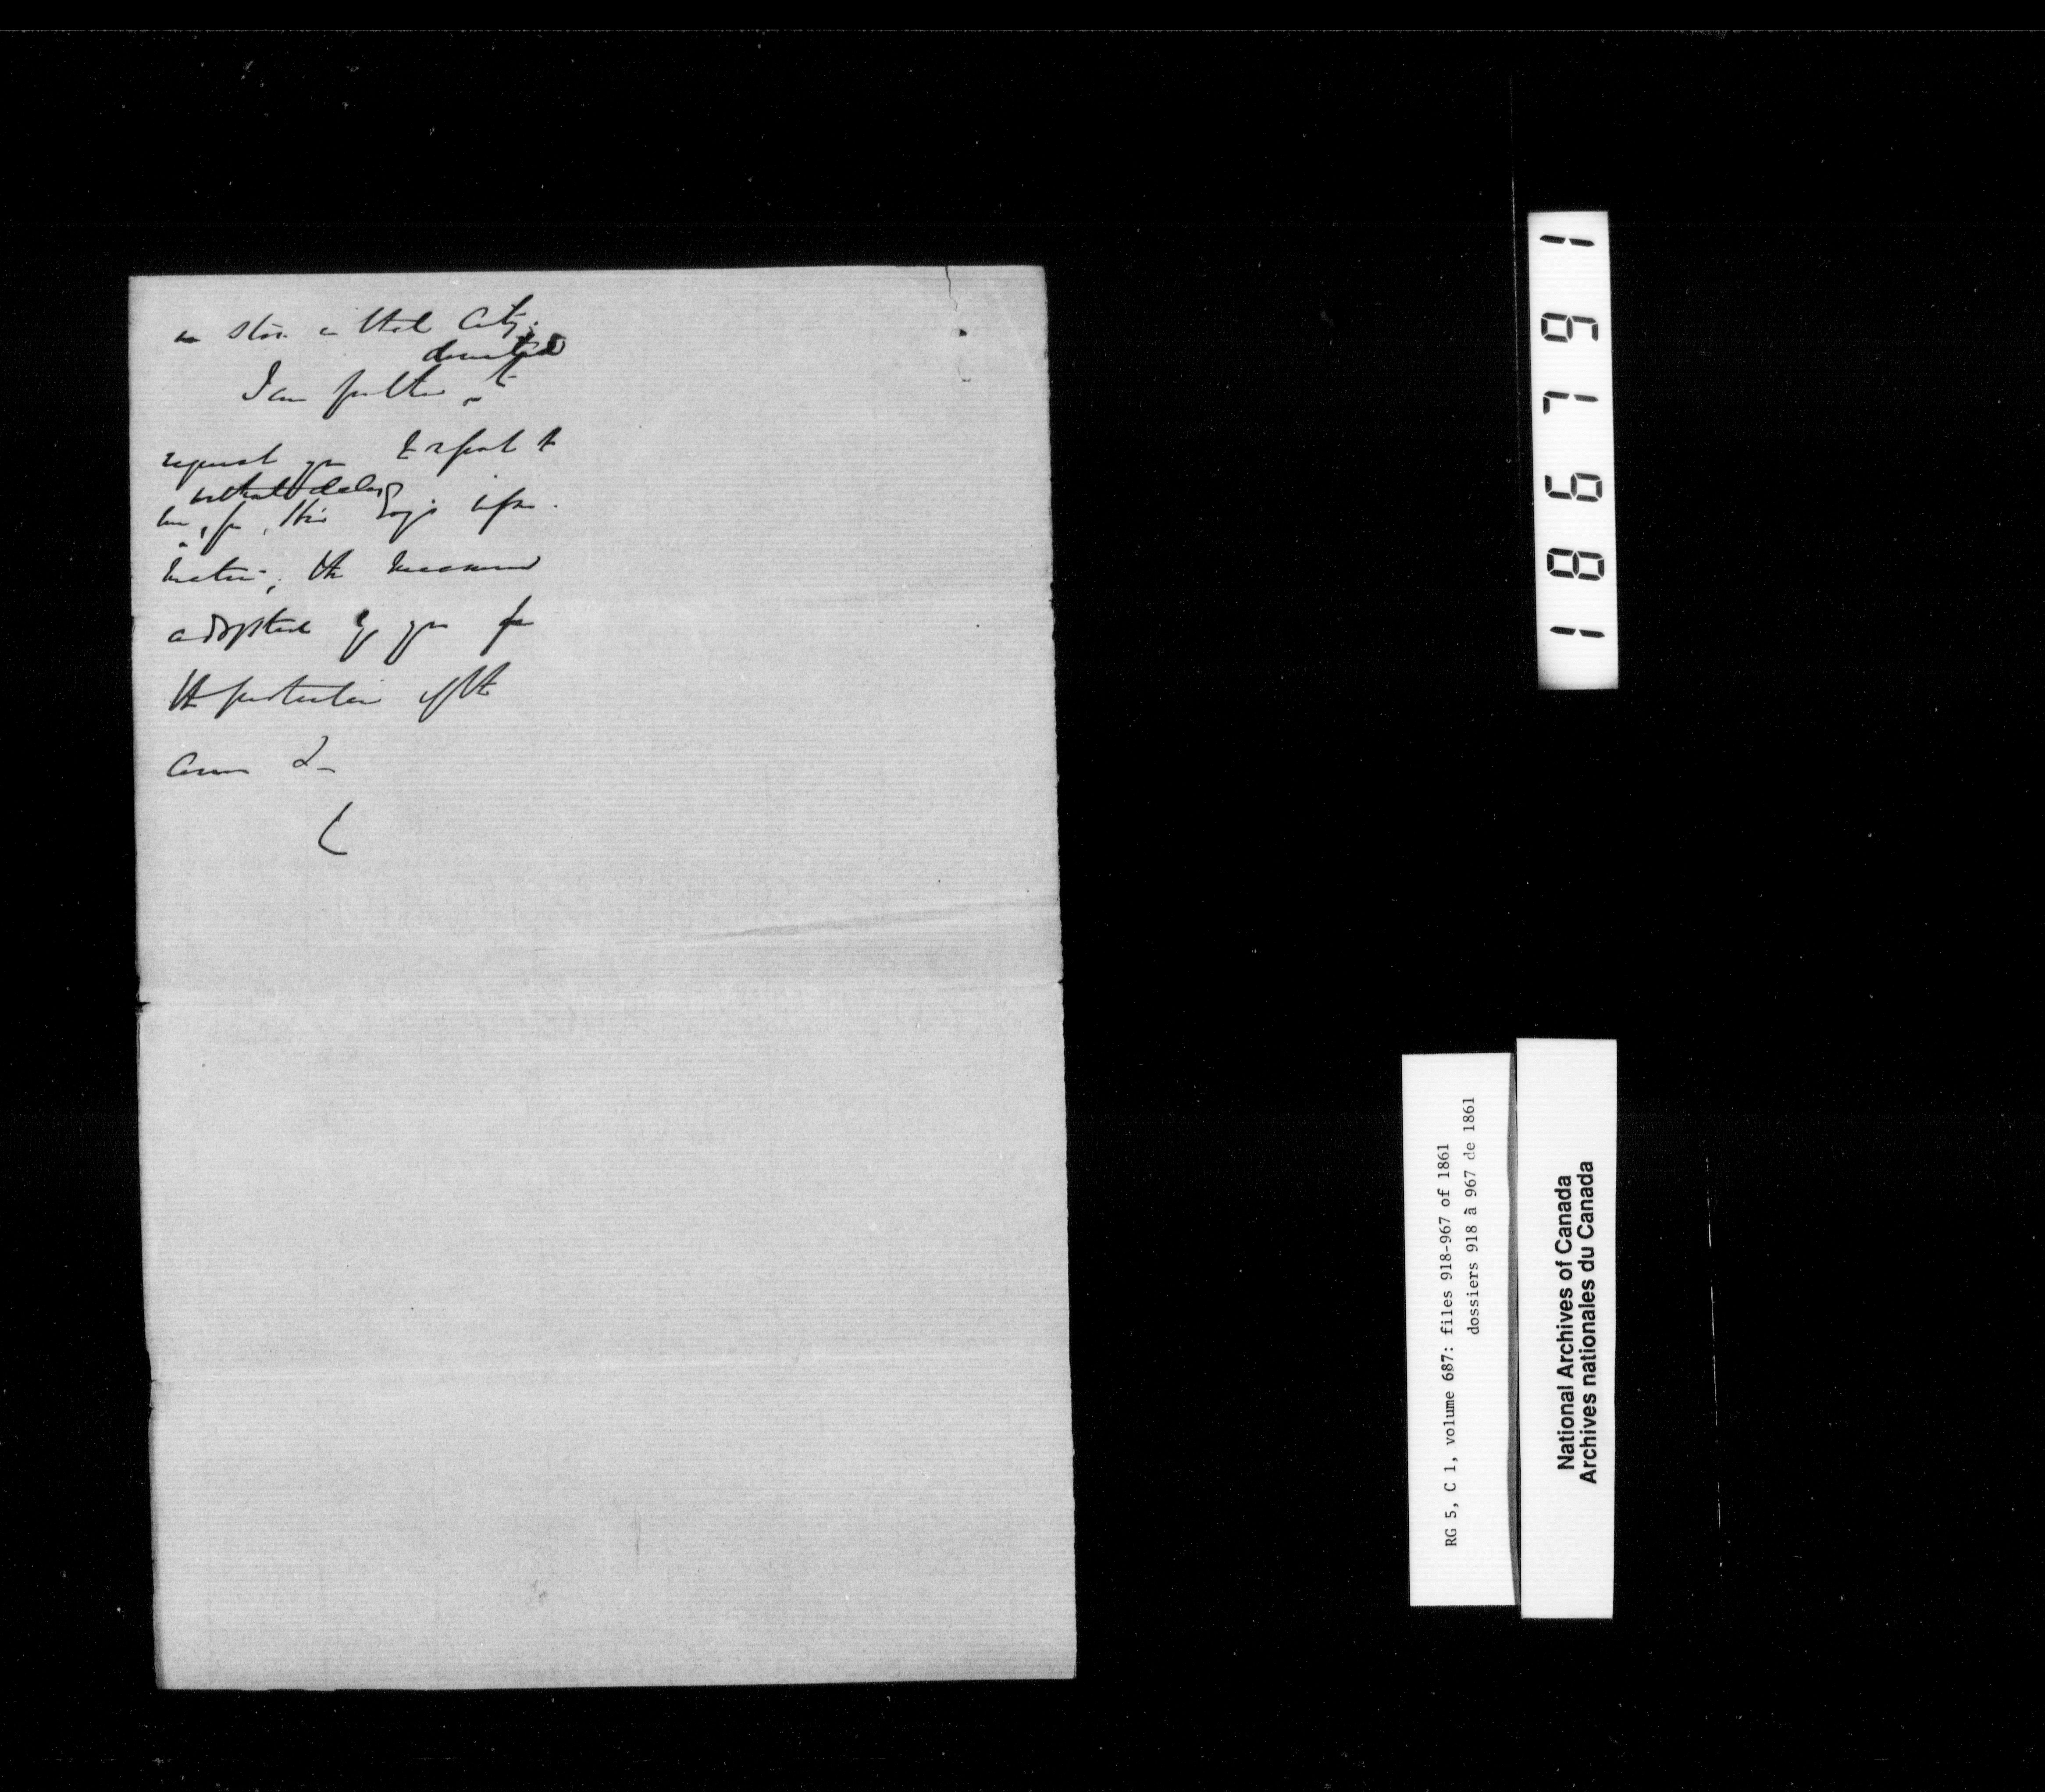 in store in that City.
I am further directed to
request you to report to
me, without delay, for His Ex's infor-
mation, the measures
adopted by you for
the protection of the
arms &
186791
RG 5, C 1, volume 687: files 918-967 of 1861
dossiers 918 à 967 de 1861
National Archives of Canada
Archives nationales du Canada